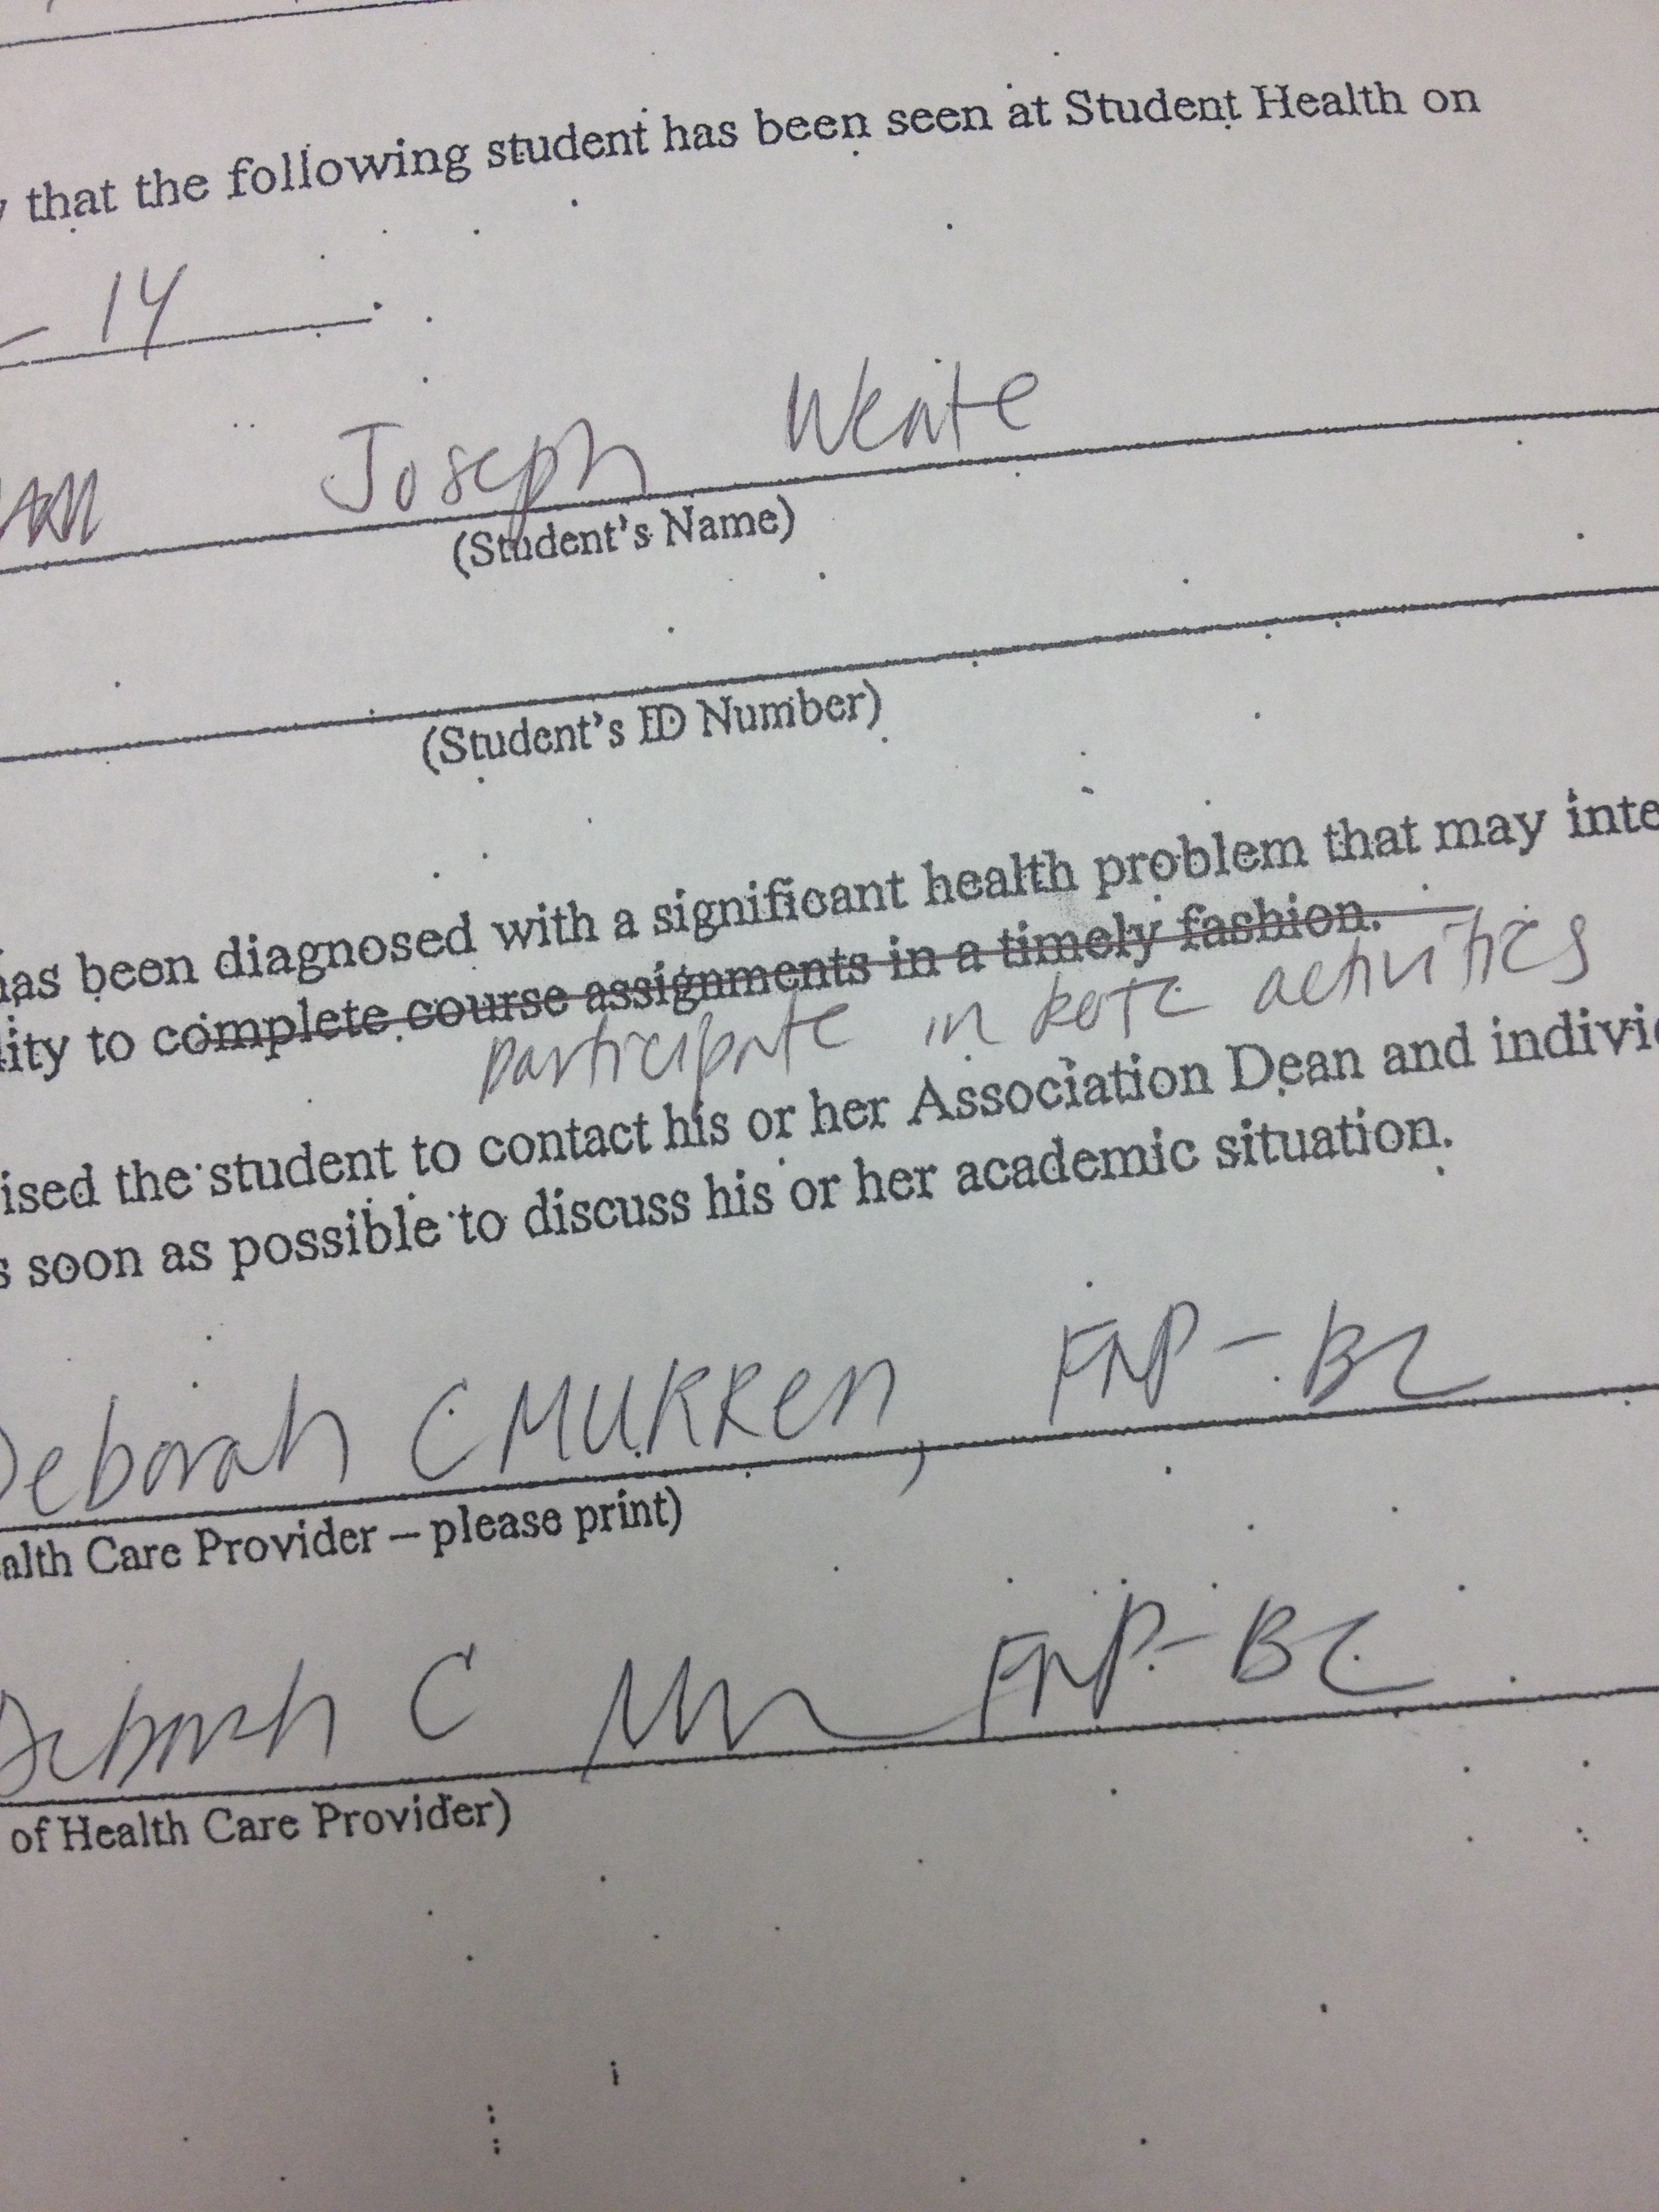 that the following student has been seen at Student Health on
- 14
Joseph Weate
(Student's Name)
(Student's ID Number)
has been diagnosed with a significant health problem that may inte
lity to complete course assignments in a timely fashion.
participate in ROTC activities
ised the student to contact his or her Association Dean and individ
s soon as possible to discuss his or her academic situation.
Deborah C MURREN, FNP-BC
alth Care Provider – please print)
Deborah C FNP-BC
of Health Care Provider)